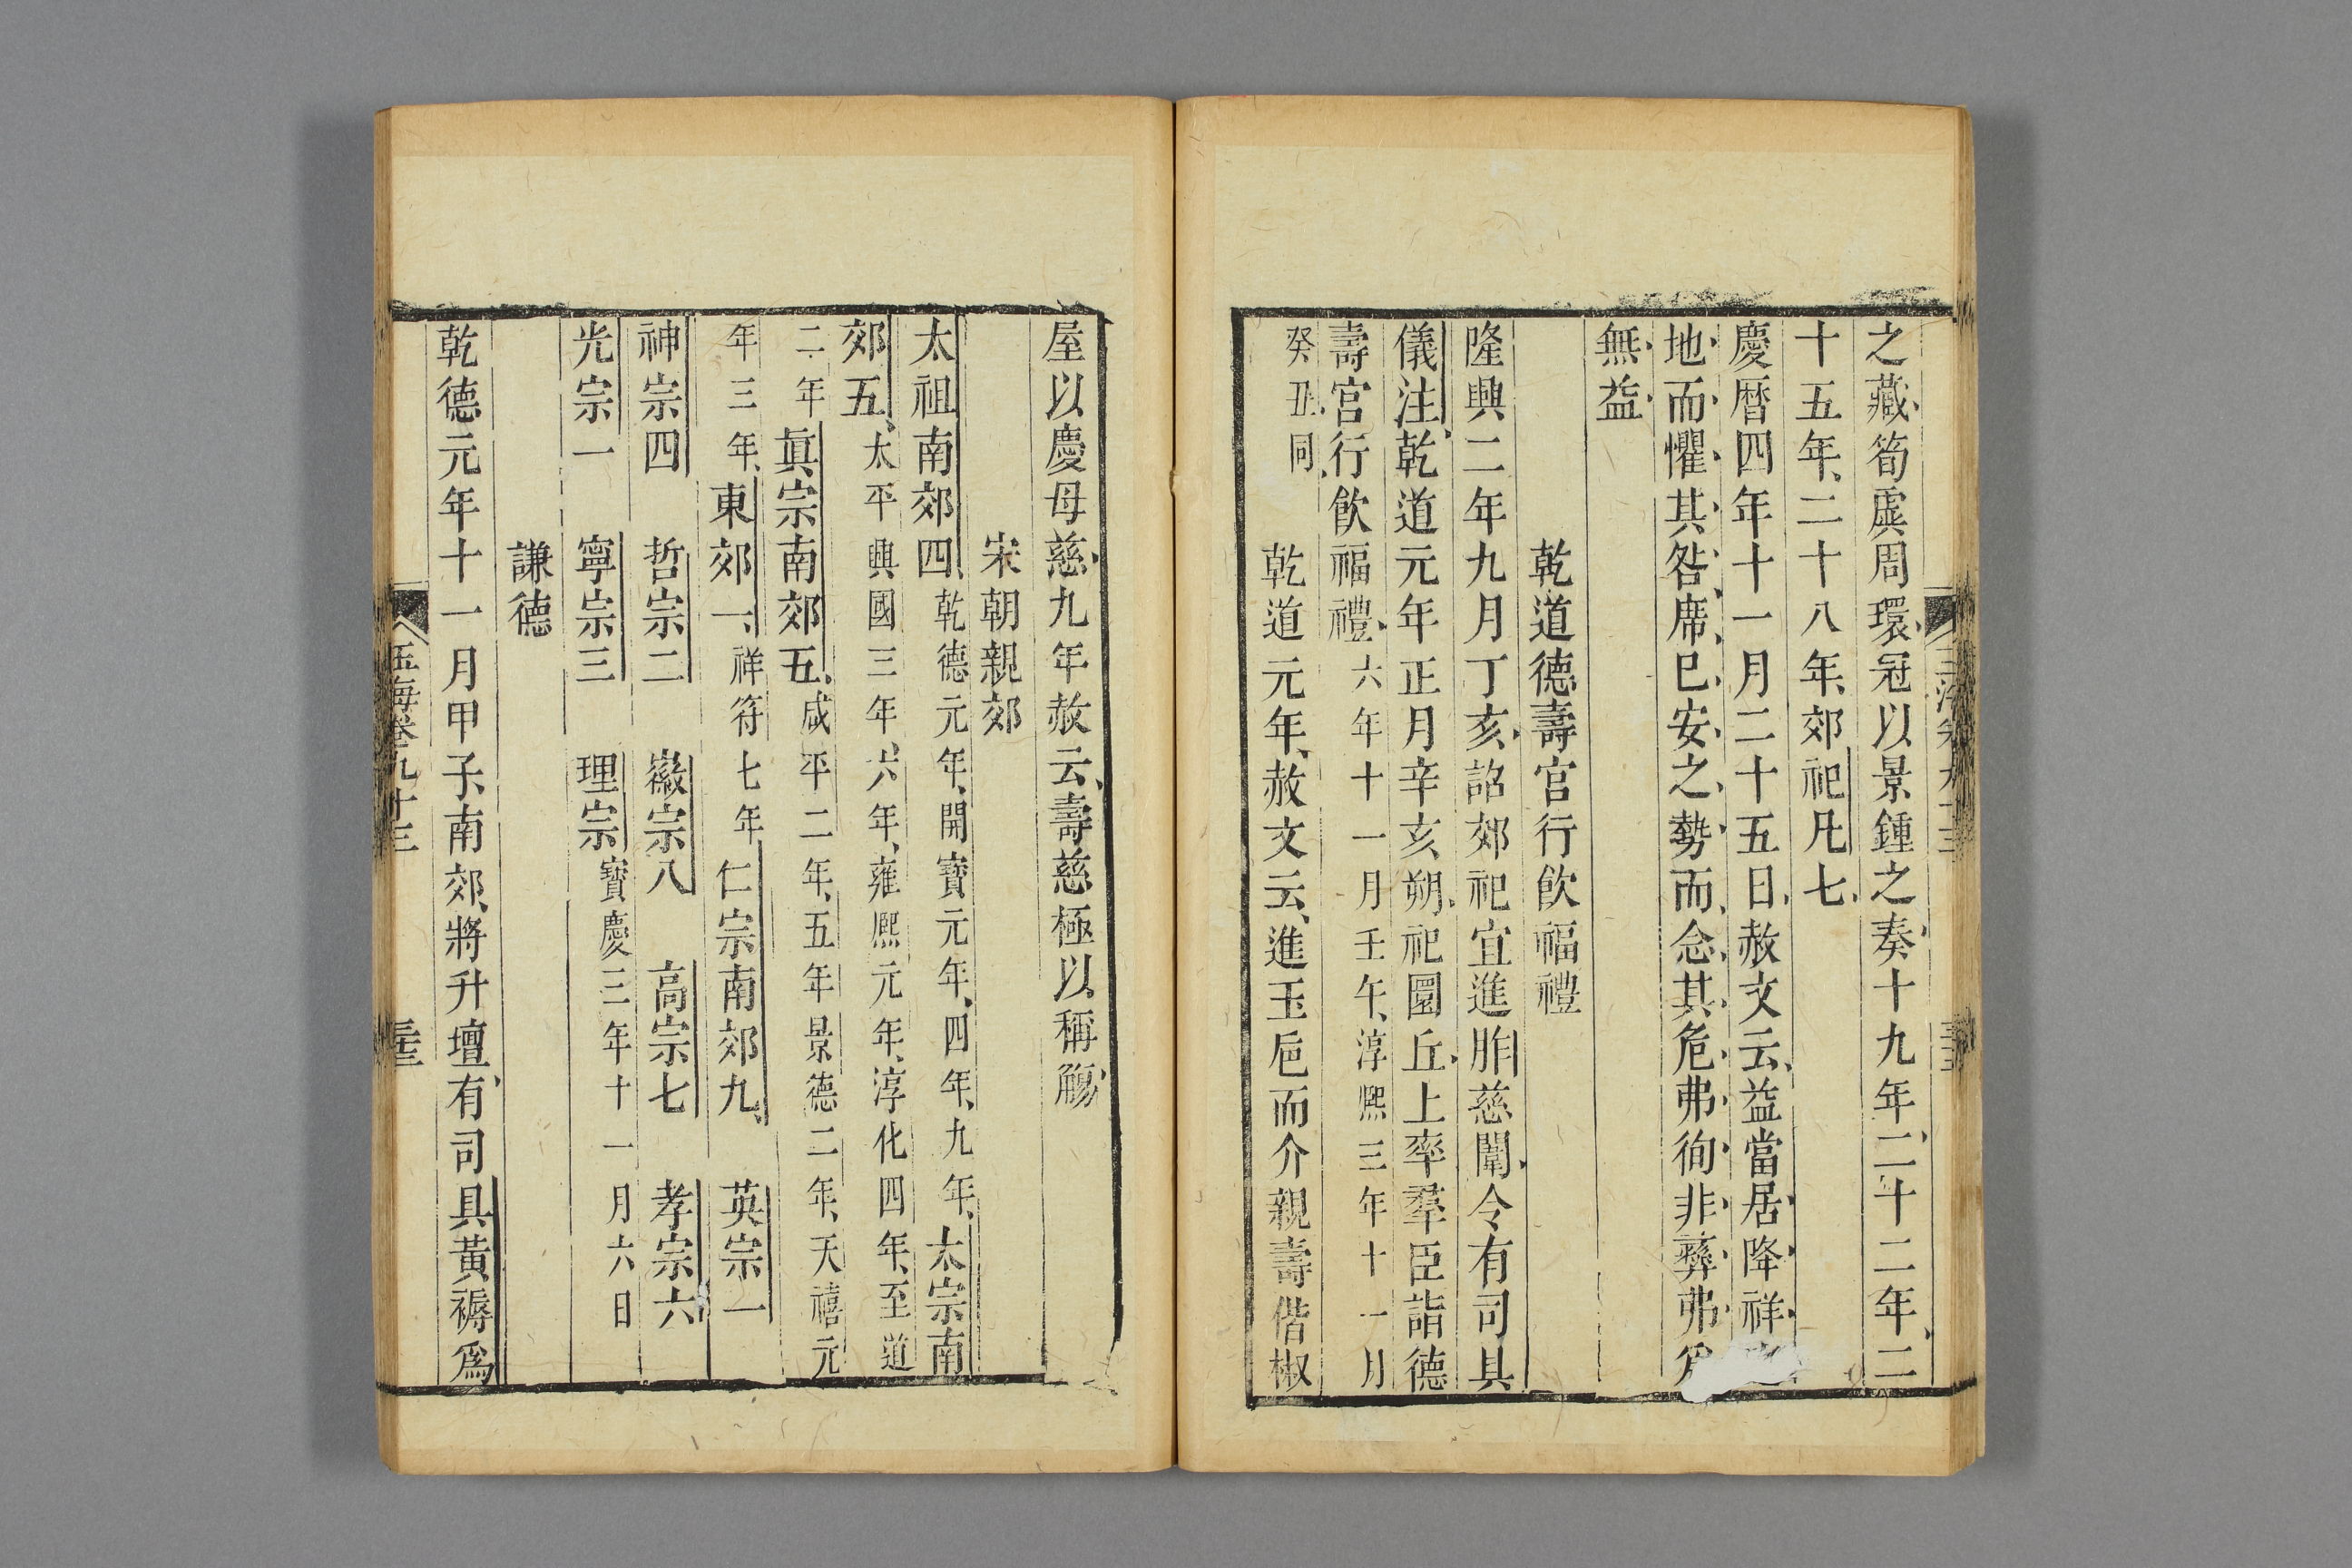 之藏筍虡周環冠以景鍾之奏十九年二十二年二
十五年二十八年郊祀凡七
慶曆四年十一月二十五日赦文云益當居降祥
地而懼其咎席巳安之勢而念其危弗徇非彝弗
無益
乾道德壽宮行飲福禮
隆興二年九月丁亥詔郊祀宜進胙慈闈令有司具
儀注乾道元年正月辛亥朔祀圜丘上率羣臣詣德
壽宮行飲福禮六年十一月壬午淳熙三年十一月
癸丑同 乾道元年赦文云進玉巵而介親壽偕椒
玉海卷九十三
屋以慶母慈九年赦云壽慈極以稱觴
宋朝親郊
太祖南郊四乾德元年開寶元年四年九年太宗南
郊五太平興國三年六年雍熙元年淳化四年至道
二年眞宗南郊五咸平二年五年景德二年天禧元
年三年東郊一祥符七年仁宗南郊九 英宗一
神宗四 哲宗二 徽宗八 高宗七 孝宗六
光宗一 寧宗三 理宗寶慶三年十一月六日
謙德
乾德元年十一月甲子南郊將升壇有司具黃褥爲
玉海卷九十三